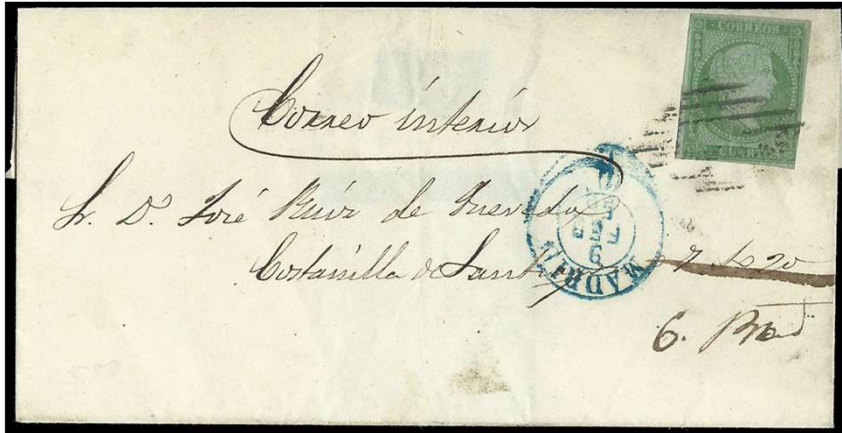 CORREOS
Correo interior
Sr. D. José Ruiz de Quevedo
Costanilla de Santiago
MADRID